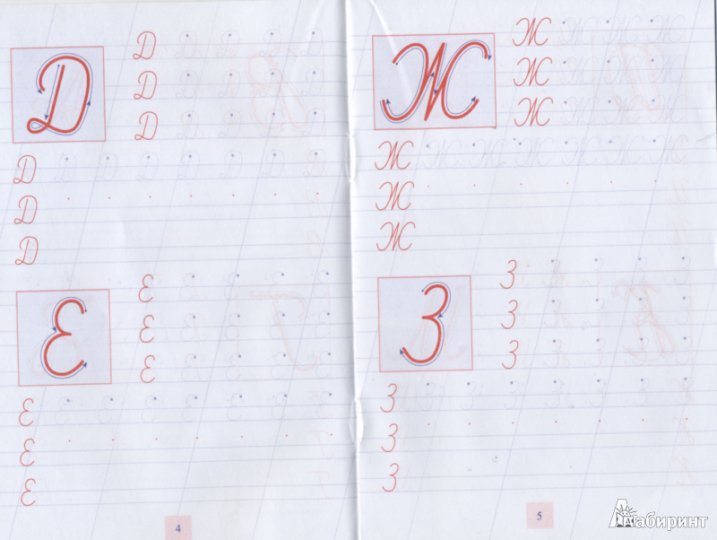 Д
Д
Д
Д
Д
Д
Д
Е
Е
Е
Е
Е
Е
Е
4
Ж
Ж
Ж
Ж
Ж
Ж
Ж
З
З
З
З
З
З
З
5
Лабиринт